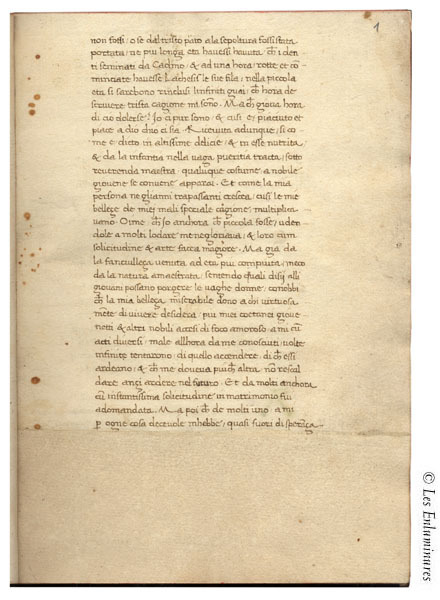 1
non fossi / o se dal tristo parto a la sepoltura fossi stata
portata / ne piu longa eta havessi havuta ch̄ i den
ti seminati da Cadmo / & ad una hora / rotte et co
minciate havesse Lachesis le sue fila / nella piccola
eta si sarebono rinchiusi l infiniti guai / ch̄ hora de
scrivere trista cagione mi sono. Ma ch̄ giova hora
di cio dolersi? Io ci pur sono / & cusi e / piaciuto et
piace a dio ch̄ io ci sia. Ricevuta adunque / si co
me e dicto in altissime delicie / & in esse nutrita
& da la infantia nella vaga pueritia tracta / sotto
reverenda maestra qualunque costume a nobile
giovene se convene apparai. Et come la mia
persona ne gli anni trapassanti cresceva / cusi le mie
belleze de miei mali speciale cagione multiplica
vano Oime ch̄ io anchora ch̄ piccola fosse / uden
dole a molti lodare me ne gloriava / & loro cum
solicitudine & arte faceva magiore. Ma gia da
la fanciulleza venuta ad eta piu compiuta / meco
da la natura amaestrata / sentendo quali disii alli
giovani possano porgere le vaghe donne, conobbi
ch̄ la mia belleza miserabile dono a chi virtuosa
mēte di vivere desidera / piu miei coetanei giove
neti & altri nobili accesi di foco amoroso / a mi cū
acti diversi / male allhora da me conosciuti / volte
infinite tentarono / di quello accendere / di ch̄ essi
ardeano / & ch̄ me doveva piuch̄ altra non rescal
dare anzi ardere nel futuro. Et da molti anchora
cū instantissima solicitudine in matrimonio fui
adomandata. Ma poi ch̄ de molti uno a mi
p ogne cosa decevole mhebbe / quasi fuori di speranza
© Les Enluminures